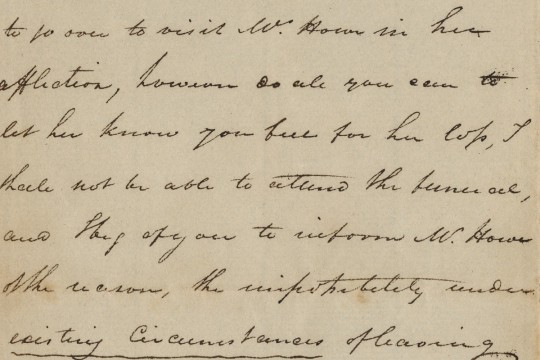 to go over to visit Mrs Howe in her
affliction, however do all you can to
let her know you feel for her loss, I
shall not be able to attend the funeral,
and I beg of you to inform Mr. Howe
of the reason, the impossibility under
existing Circumstances of leaving